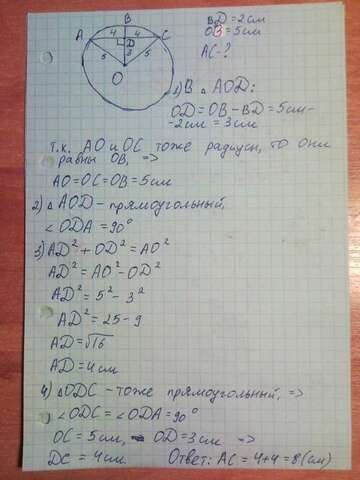 B
A 4 4 C
D
5 3 5
O
BD = 2см
OB = 5см
AC - ?
1) В △ AOD:
OD = OB - BD = 5см -
- 2см = 3см
т.к. AO и OC тоже радиусы, то они
равны OB, =>
AO = OC = OB = 5см
2) △ AOD - прямоугольный,
∠ODA = 90°
3) AD² + OD² = AO²
AD² = AO² - OD²
AD² = 5² - 3²
AD² = 25 - 9
AD = √16
AD = 4см
4) △ ODC - тоже прямоугольный, =>
∠ODC = ∠ODA = 90°
OC = 5см, OD = 3см =>
DC = 4см Ответ: AC = 4+4 = 8(см)